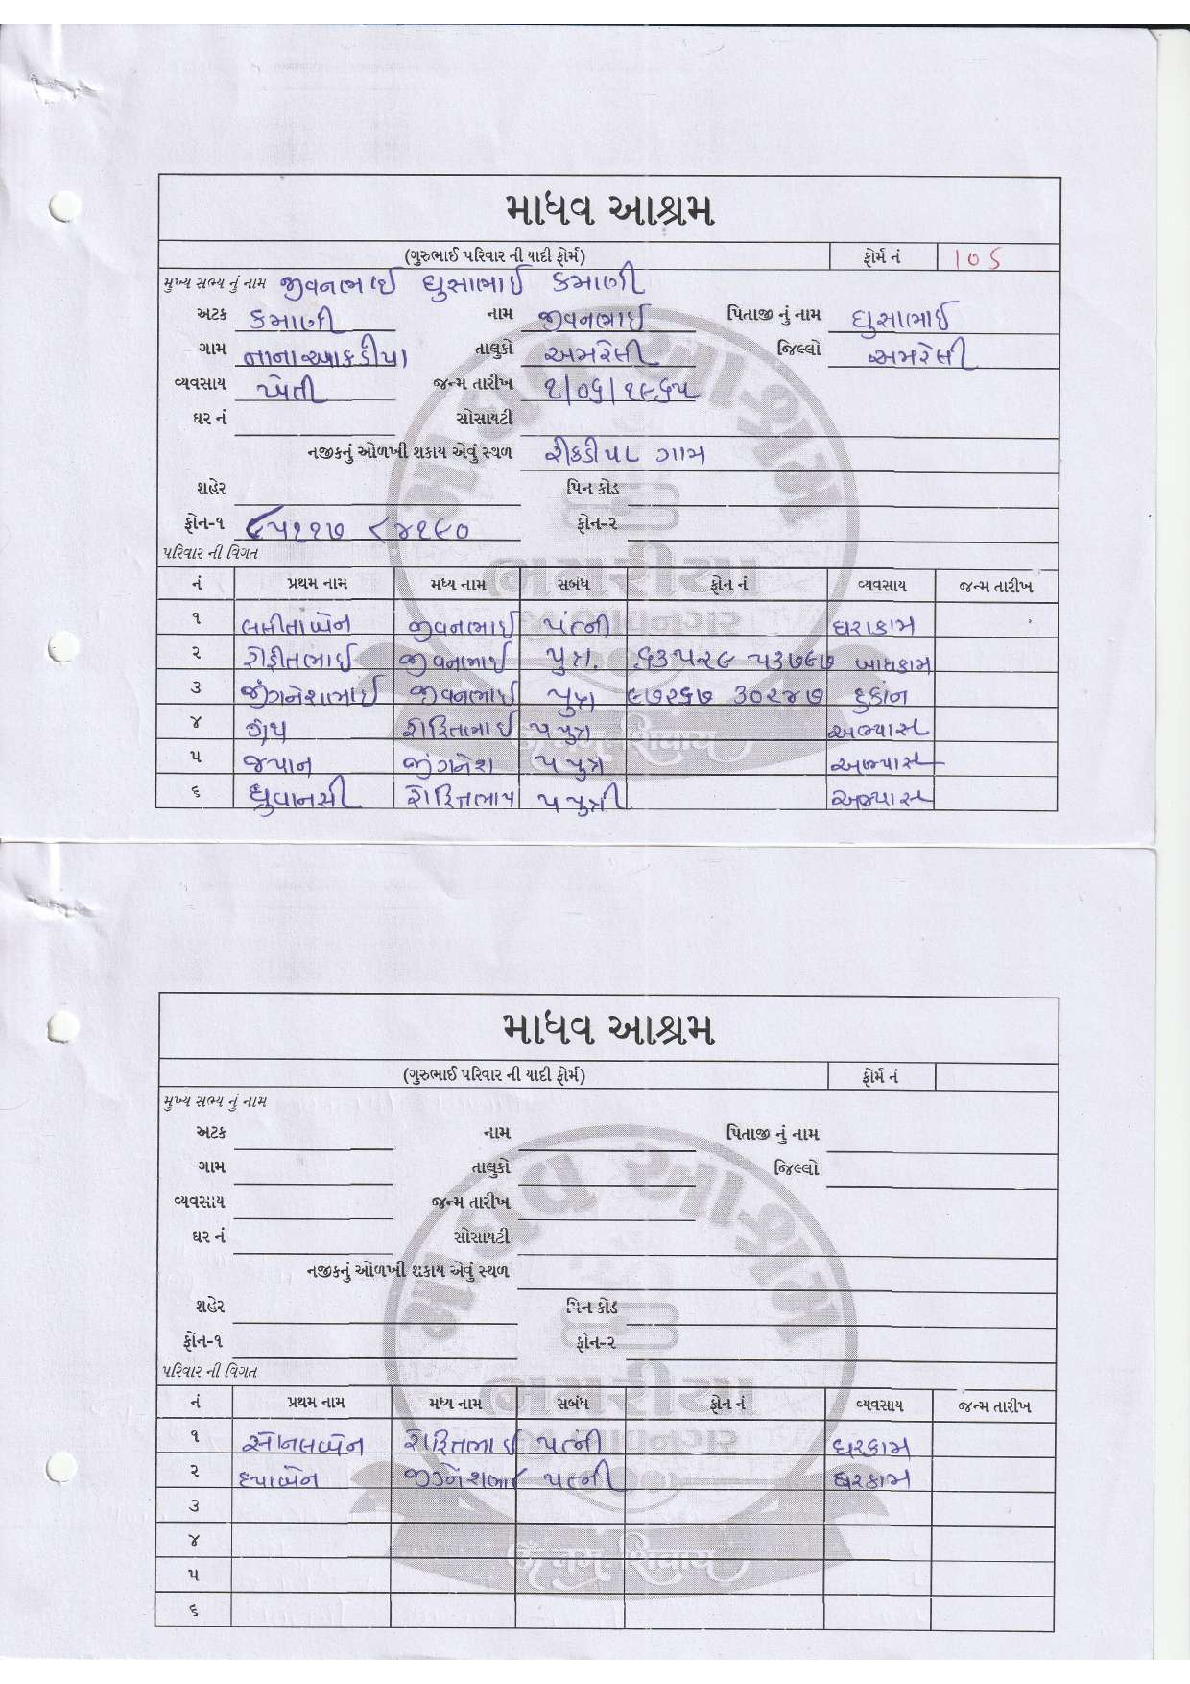 માધવ આશ્રમ
(ગુરુભાઈ પરિવાર ની યાદી ફોર્મ) ફોર્મ નં ૧૦૬
મુખ્ય સભ્ય નું નામ જીવનભાઈ ઘુસાભાઈ કમાણી
અટક કમાણી નામ જીવનભાઈ પિતાજી નું નામ ઘુસાભાઈ
ગામ નાનાઆકડીયા તાલુકો અમરેલી જિલ્લો અમરેલી
વ્યવસાય ખેતી જન્મ તારીખ ૧/૦૬/૧૯૬૫
ઘર નં સોસાયટી
નજીકનું ઓળખી શકાય એવું સ્થળ ગામ
શહેર પિન કોડ
ફોન-૧ ૯૫૧૧૭ ૮૪૧૯૦ ફોન-૨
પરિવાર ની વિગત
નં પ્રથમ નામ મધ્ય નામ સબંધ ફોન નં વ્યવસાય જન્મ તારીખ
૧ જીવનભાઈ પત્ની ઘરકામ
૨ જીવનાભાઈ પુત્ર. ૬૩૫૨૯ ૫૩૭૯૭ બાધકામ
૩ જીગનેશભાઈ જીવનભાઈ પુત્ર ૯૭૨૬૭ ૩૦૨૪૭ દુકાન
૪ પપુત્ર અભ્યાસ
૫ જયાન જીગનેશ પપુત્ર અભ્યાસ
૬ ધ્રુવાનસી પપુત્રી અભ્યાસ
માધવ આશ્રમ
(ગુરુભાઈ પરિવાર ની યાદી ફોર્મ) ફોર્મ નં
મુખ્ય સભ્ય નું નામ
અટક નામ પિતાજી નું નામ
ગામ તાલુકો જિલ્લો
વ્યવસાય જન્મ તારીખ
ઘર નં સોસાયટી
નજીકનું ઓળખી શકાય એવું સ્થળ
શહેર પિન કોડ
ફોન-૧ ફોન-૨
પરિવાર ની વિગત
નં પ્રથમ નામ મધ્ય નામ સબંધ ફોન નં વ્યવસાય જન્મ તારીખ
૧ પત્ની ઘરકામ
૨ પત્ની ઘરકામ
૩
૪
૫
૬